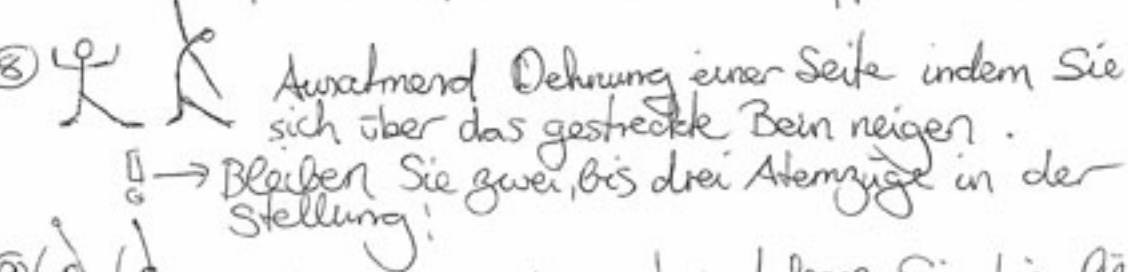 8 Ausatmend Dehnung einer Seite indem Sie
sich über das gestreckte Bein neigen.
→ Bleiben Sie zwei, bis drei Atemzüge in der
Stellung!